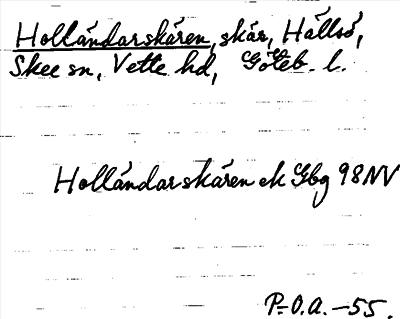 Holländarskären, skär, Hällsö,
Skee sn, Vette hd, Göteb. l.
Holländarskären ek Gbg 98NV
P.O.A. -55.